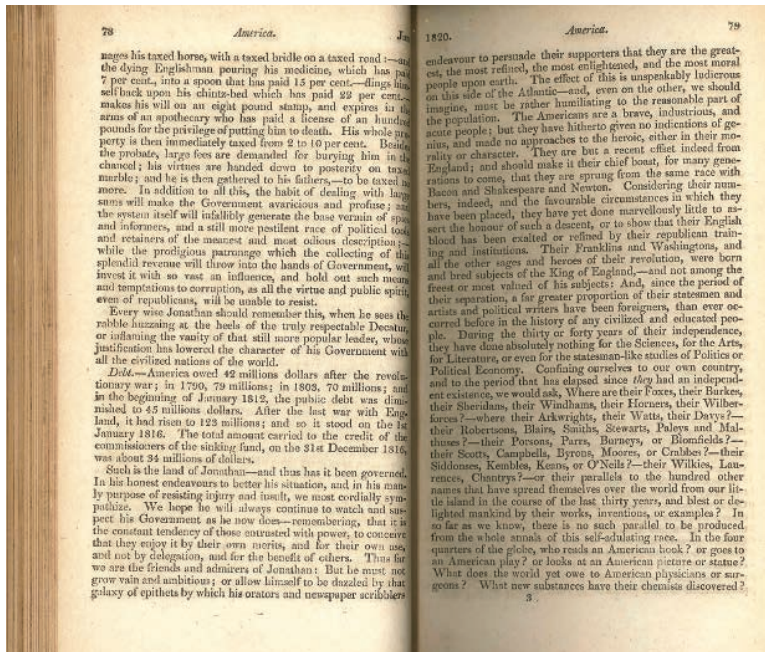 78
America.
Jan
nages his taxed horse, with a taxed bridle on a taxed road :—and
the dying Englishman pouring his medicine, which has paid
7 per cent., into a spoon that has paid 15 per cent.—flings him-
self back upon his chintz-bed which has paid 22 per cent.—
makes his will on an eight pound stamp, and expires in the
arms of an apothecary who has paid a license of an hundred
pounds for the privilege of putting him to death. His whole pro-
perty is then immediately taxed from 2 to 10 per cent. Besides
the probate, large fees are demanded for burying him in the
chancel; his virtues are handed down to posterity on taxed
marble; and he is then gathered to his fathers,—to be taxed no
more. In addition to all this, the habit of dealing with large
sums will make the Government avaricious and profuse; and
the system itself will infallibly generate the base vermin of spies
and informers, and a still more pestilent race of political tools
and retainers of the meanest and most odious description;—
while the prodigious patronage which the collecting of this
splendid revenue will throw into the hands of Government, will
invest it with so vast an influence, and hold out such means
and temptations to corruption, as all the virtue and public spirit,
even of republicans, will be unable to resist.
Every wise Jonathan should remember this, when he sees the
rabble huzzaing at the heels of the truly respectable Decatur,
or inflaming the vanity of that still more popular leader, whose
justification has lowered the character of his Government with
all the civilized nations of the world.
Debt.—America owed 42 millions dollars after the revolu-
tionary war; in 1790, 79 millions; in 1803, 70 millions; and
in the beginning of January 1812, the public debt was dimi-
nished to 45 millions dollars. After the last war with Eng-
land, it had risen to 123 millions; and so it stood on the 1st
January 1816. The total amount carried to the credit of the
commissioners of the sinking fund, on the 31st December 1816,
was about 34 millions of dollars.
Such is the land of Jonathan—and thus has it been governed.
In his honest endeavours to better his situation, and in his man-
ly purpose of resisting injury and insult, we most cordially sym-
pathize. We hope he will always continue to watch and sus-
pect his Government as he now does—remembering, that it is
the constant tendency of those entrusted with power, to conceive
that they enjoy it by their own merits, and for their own use,
and not by delegation, and for the benefit of others. Thus far
we are the friends and admirers of Jonathan: But he must not
grow vain and ambitious; or allow himself to be dazzled by that
galaxy of epithets by which his orators and newspaper scribblers
1820.
America.
79
endeavour to persuade their supporters that they are the great-
est, the most refined, the most enlightened, and the most moral
people upon earth. The effect of this is unspeakably ludicrous
on this side of the Atlantic—and, even on the other, we should
imagine, must be rather humiliating to the reasonable part of
the population. The Americans are a brave, industrious, and
acute people; but they have hitherto given no indications of ge-
nius, and made no approaches to the heroic, either in their mo-
rality or character. They are but a recent offset indeed from
England; and should make it their chief boast, for many gene-
rations to come, that they are sprung from the same race with
Bacon and Shakespeare and Newton. Considering their num-
bers, indeed, and the favourable circumstances in which they
have been placed, they have yet done marvellously little to as-
sert the honour of such a descent, or to show that their English
blood has been exalted or refined by their republican train-
ing and institutions. Their Franklins and Washingtons, and
all the other sages and heroes of their revolution, were born
and bred subjects of the King of England,—and not among the
freest or most valued of his subjects: And, since the period of
their separation, a far greater proportion of their statesmen and
artists and political writers have been foreigners, than ever oc-
curred before in the history of any civilized and educated peo-
ple. During the thirty or forty years of their independence,
they have done absolutely nothing for the Sciences, for the Arts,
for Literature, or even for the statesman-like studies of Politics or
Political Economy. Confining ourselves to our own country,
and to the period that has elapsed since they had an independ-
ent existence, we would ask, Where are their Foxes, their Burkes,
their Sheridans, their Windhams, their Horners, their Wilber-
forces?—where their Arkwrights, their Watts, their Davys?—
their Robertsons, Blairs, Smiths, Stewarts, Paleys and Mal-
thuses?—their Porsons, Parrs, Burneys, or Blomfields?—
their Scotts, Campbells, Byrons, Moores, or Crabbes?—their
Siddonses, Kembles, Keans, or O'Neils?—their Wilkies, Lau-
rences, Chantrys?—or their parallels to the hundred other
names that have spread themselves over the world from our lit-
tle island in the course of the last thirty years, and blest or de-
lighted mankind by their works, inventions, or examples? In
so far as we know, there is no such parallel to be produced
from the whole annals of this self-adulating race. In the four
quarters of the globe, who reads an American book? or goes to
an American play? or looks at an American picture or statue?
What does the world yet owe to American physicians or sur-
geons? What new substances have their chemists discovered?
3